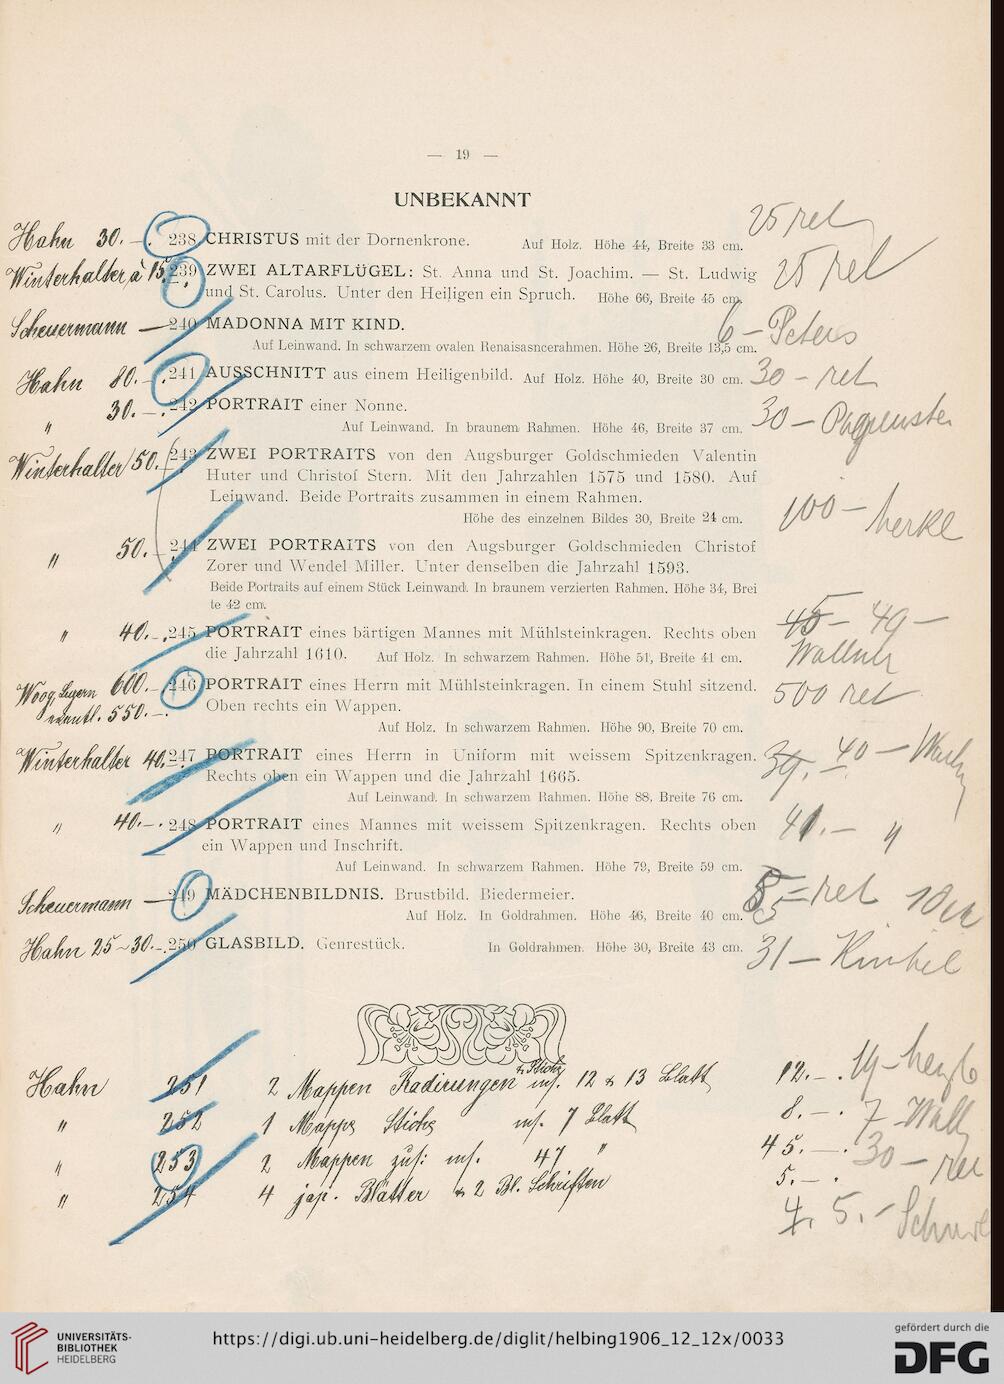 — 19 —
UNBEKANNT
Hahn 30.–. 238 CHRISTUS mit der Dornenkrone. Auf Holz. Höhe 44, Breite 33 cm. 25 ret
Winterhalter à 15. 239 ZWEI ALTARFLÜGEL: St. Anna und St. Joachim. — St. Ludwig 25 ret
und St. Carolus. Unter den Heiligen ein Spruch. Höhe 66, Breite 45 cm.
Scheuermann — 240 MADONNA MIT KIND. 6 – Peters
Auf Leinwand. In schwarzem ovalen Renaisasncerahmen. Höhe 26, Breite 13,5 cm.
Hahn 80.–. 241 AUSSCHNITT aus einem Heiligenbild. Auf Holz. Höhe 40, Breite 30 cm. 30 – ret
" 30.–. 242 PORTRAIT einer Nonne. 30 –
Auf Leinwand. In braunem Rahmen. Höhe 46, Breite 37 cm.
Winterhalter 50. 243 ZWEI PORTRAITS von den Augsburger Goldschmieden Valentin
Huter und Christof Stern. Mit den Jahrzahlen 1575 und 1580. Auf
Leinwand. Beide Portraits zusammen in einem Rahmen.
Höhe des einzelnen Bildes 30, Breite 24 cm. 100 –
" 50.– 244 ZWEI PORTRAITS von den Augsburger Goldschmieden Christof
Zorer und Wendel Miller. Unter denselben die Jahrzahl 1593.
Beide Portraits auf einem Stück Leinwand. In braunem verzierten Rahmen. Höhe 34, Brei
te 42 cm.
" 40.–. 245 PORTRAIT eines bärtigen Mannes mit Mühlsteinkragen. Rechts oben
die Jahrzahl 1610. Auf Holz. In schwarzem Rahmen. Höhe 51, Breite 41 cm.
600.–. 246 PORTRAIT eines Herrn mit Mühlsteinkragen. In einem Stuhl sitzend. 500 ret
eventl. 550.–. Oben rechts ein Wappen.
Auf Holz. In schwarzem Rahmen. Höhe 90, Breite 70 cm.
Winterhalter 40. 247 PORTRAIT eines Herrn in Uniform mit weissem Spitzenkragen. 39. 40 –
Rechts oben ein Wappen und die Jahrzahl 1665.
Auf Leinwand. In schwarzem Rahmen. Höhe 88, Breite 76 cm.
" 40.–. 248 PORTRAIT eines Mannes mit weissem Spitzenkragen. Rechts oben 41.– "
ein Wappen und Inschrift.
Auf Leinwand. In schwarzem Rahmen. Höhe 79, Breite 59 cm.
Scheuermann — 249 MÄDCHENBILDNIS. Brustbild. Biedermeier. ret
Auf Holz. In Goldrahmen. Höhe 46, Breite 40 cm.
Hahn 25–30.–. 250 GLASBILD. Genrestück. In Goldrahmen. Höhe 30, Breite 43 cm. 31 –
Hahn 251 2 Mappen Radirungen u. Stiche ins. 12 u 13 Blatt 12.–.
" 252 1 Mappe Stiche ins. 7 Blatt 8.–. 7
" 253 2 Mappen zus: ins. 47 " 45.–. 30 – ret
" 254 4 jap. Blätter u 2 Bl. Schriften 5.–.
4. 5.–
UNIVERSITÄTS-
BIBLIOTHEK
HEIDELBERG
https://digi.ub.uni-heidelberg.de/diglit/helbing1906_12_12x/0033
gefördert durch die
DFG